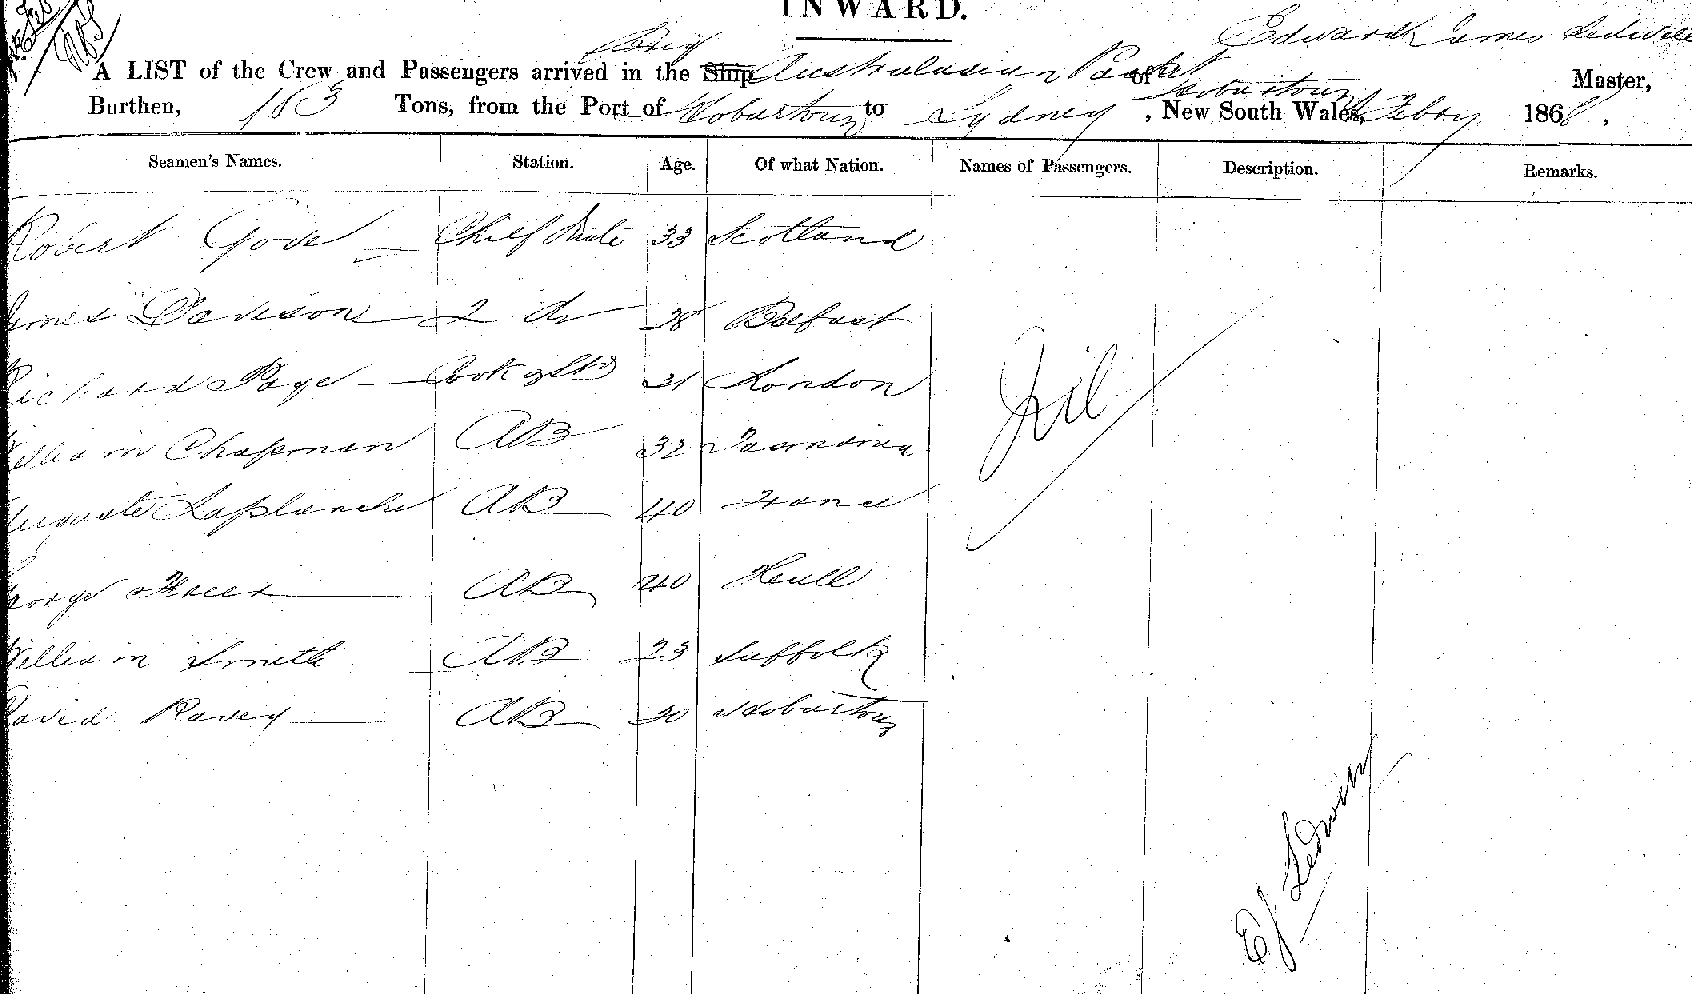 INWARD.
Brig
Edward James
A LIST of the Crew and Passengers arrived in the Ship Australasian Packet of Hobartown Master,
Burthen, 183 Tons, from the Port of Hobartown to Sydney , New South Wales, Febry 1868.
Seamen's Names. Station. Age. Of what Nation. Names of Passengers. Description. Remarks.
Robert Gove Chief Mate 33 Scotland
James Davison 2 do 28 Belfast
Richard Page Cook & Std 31 London
William Chapman AB 32
Auguste Laplanche AB 40 France
George AB 40 Hull
William Smith AB 23 Suffolk
David Pavey AB 20 Hobartown
Nil
EJ Ledwell